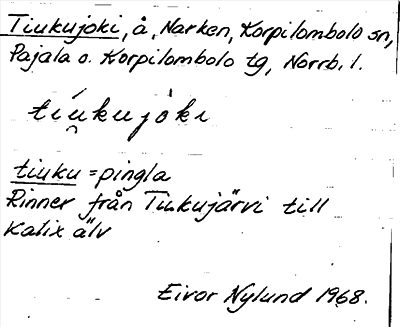 Tiukujoki, å, Narken, Korpilombolo sn,
Pajala o. Korpilombolo tg, Norrb. l.
tíu̯kujȯki
tiuku = pingla
Rinner från Tiukujärvi till
Kalix älv
Eivor Nylund 1968.